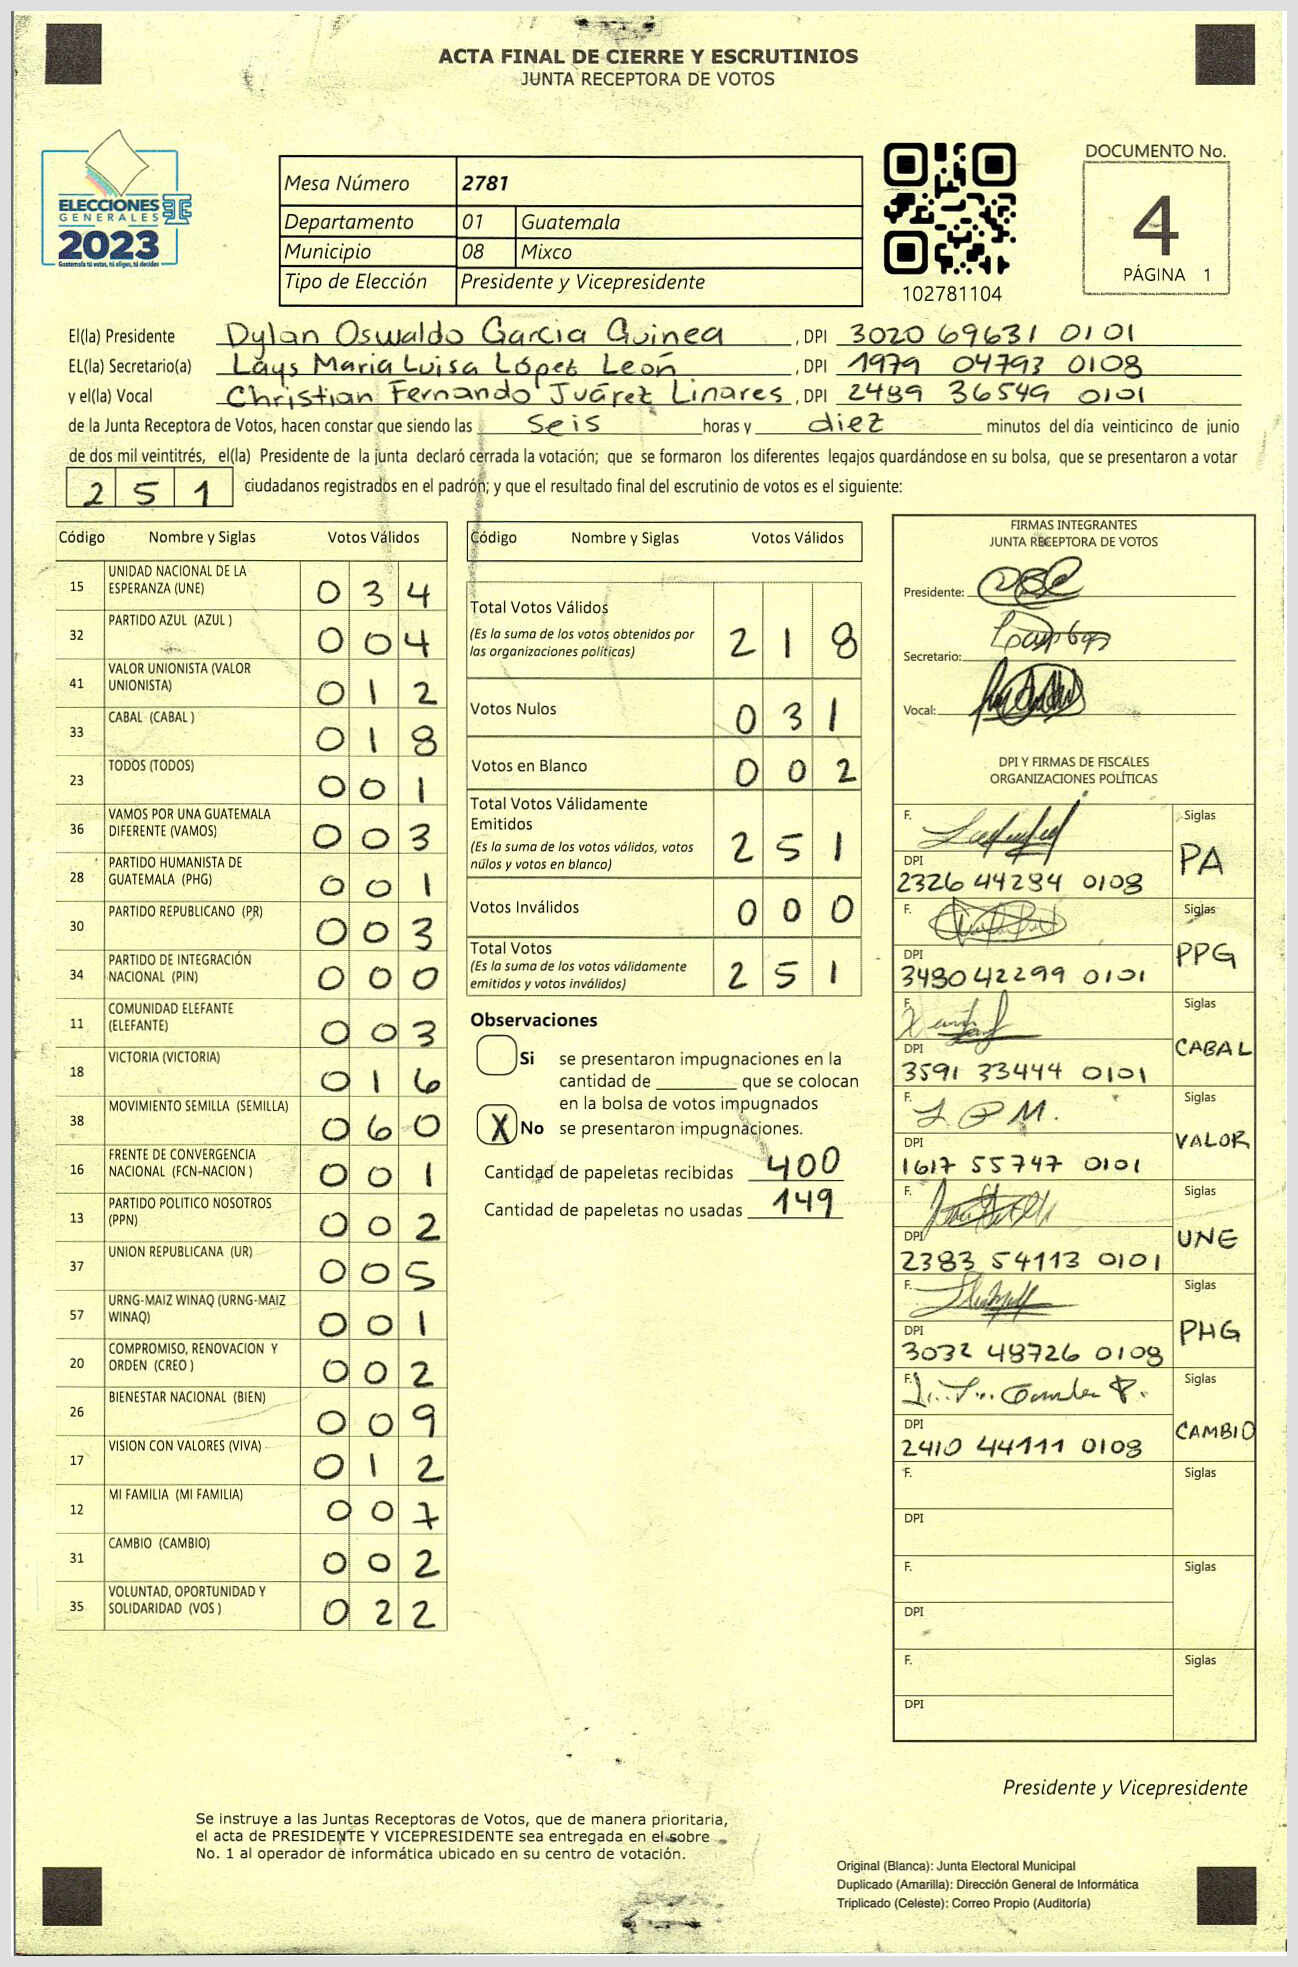 ACTA FINAL DE CIERRE Y ESCRUTINIOS
JUNTA RECEPTORA DE VOTOS
ELECCIONES
GENERALES
2023
Guatemala tú votas, tú eliges, tú decides
Mesa Número 2781
Departamento 01 Guatemala
Municipio 08 Mixco
Tipo de Elección Presidente y Vicepresidente
102781104
DOCUMENTO No.
4
PÁGINA 1
El(la) Presidente Dylan Oswaldo Garcia Guinea , DPI 3020 69631 0101
EL(la) Secretario(a) Lays Maria Luisa López León , DPI 1979 04793 0108
y el(la) Vocal Christian Fernando Juárez Linares , DPI 2489 36549 0101
de la Junta Receptora de Votos, hacen constar que siendo las seis horas y diez minutos del día veinticinco de junio
de dos mil veintitrés, el(la) Presidente de la junta declaró cerrada la votación; que se formaron los diferentes legajos quardándose en su bolsa, que se presentaron a votar
251 ciudadanos registrados en el padrón; y que el resultado final del escrutinio de votos es el siguiente:
Código Nombre y Siglas Votos Válidos
15 UNIDAD NACIONAL DE LA
ESPERANZA (UNE) 034
32 PARTIDO AZUL (AZUL ) 004
41 VALOR UNIONISTA (VALOR
UNIONISTA) 012
33 CABAL (CABAL ) 018
23 TODOS (TODOS) 001
36 VAMOS POR UNA GUATEMALA
DIFERENTE (VAMOS) 003
28 PARTIDO HUMANISTA DE
GUATEMALA (PHG) 001
30 PARTIDO REPUBLICANO (PR) 003
34 PARTIDO DE INTEGRACIÓN
NACIONAL (PIN) 000
11 COMUNIDAD ELEFANTE
(ELEFANTE) 003
18 VICTORIA (VICTORIA) 016
38 MOVIMIENTO SEMILLA (SEMILLA) 060
16 FRENTE DE CONVERGENCIA
NACIONAL (FCN-NACION ) 001
13 PARTIDO POLITICO NOSOTROS
(PPN) 002
37 UNION REPUBLICANA (UR) 005
57 URNG-MAIZ WINAQ (URNG-MAIZ
WINAQ) 001
20 COMPROMISO, RENOVACION Y
ORDEN (CREO ) 002
26 BIENESTAR NACIONAL (BIEN) 009
17 VISION CON VALORES (VIVA) 012
12 MI FAMILIA (MI FAMILIA) 007
31 CAMBIO (CAMBIO) 002
35 VOLUNTAD, OPORTUNIDAD Y
SOLIDARIDAD (VOS ) 022
Código Nombre y Siglas Votos Válidos
Total Votos Válidos
(Es la suma de los votos obtenidos por
las organizaciones políticas) 218
Votos Nulos 031
Votos en Blanco 002
Total Votos Válidamente
Emitidos
(Es la suma de los votos válidos, votos
nulos y votos en blanco) 251
Votos Inválidos 000
Total Votos
(Es la suma de los votos válidamente
emitidos y votos inválidos) 251
Observaciones
Si se presentaron impugnaciones en la
cantidad de ________ que se colocan
en la bolsa de votos impugnados
X No se presentaron impugnaciones.
Cantidad de papeletas recibidas 400
Cantidad de papeletas no usadas 149
FIRMAS INTEGRANTES
JUNTA RECEPTORA DE VOTOS
Presidente:
Secretario:
Vocal:
DPI Y FIRMAS DE FISCALES
ORGANIZACIONES POLÍTICAS
F. Siglas
DPI PA
2326 44284 0108
F. Siglas
DPI PPG
3480 42299 0101
F. Siglas
DPI CABAL
3591 33444 0101
F. Siglas
DPI VALOR
1617 55747 0101
F. Siglas
DPI UNE
2383 54113 0101
F. Siglas
DPI PHG
3032 48726 0108
F. Siglas
DPI CAMBIO
2410 44111 0108
F. Siglas
DPI
F. Siglas
DPI
F. Siglas
DPI
Presidente y Vicepresidente
Se instruye a las Juntas Receptoras de Votos, que de manera prioritaria,
el acta de PRESIDENTE Y VICEPRESIDENTE sea entregada en el sobre
No. 1 al operador de informática ubicado en su centro de votación.
Original (Blanca): Junta Electoral Municipal
Duplicado (Amarilla): Dirección General de Informática
Triplicado (Celeste): Correo Propio (Auditoría)